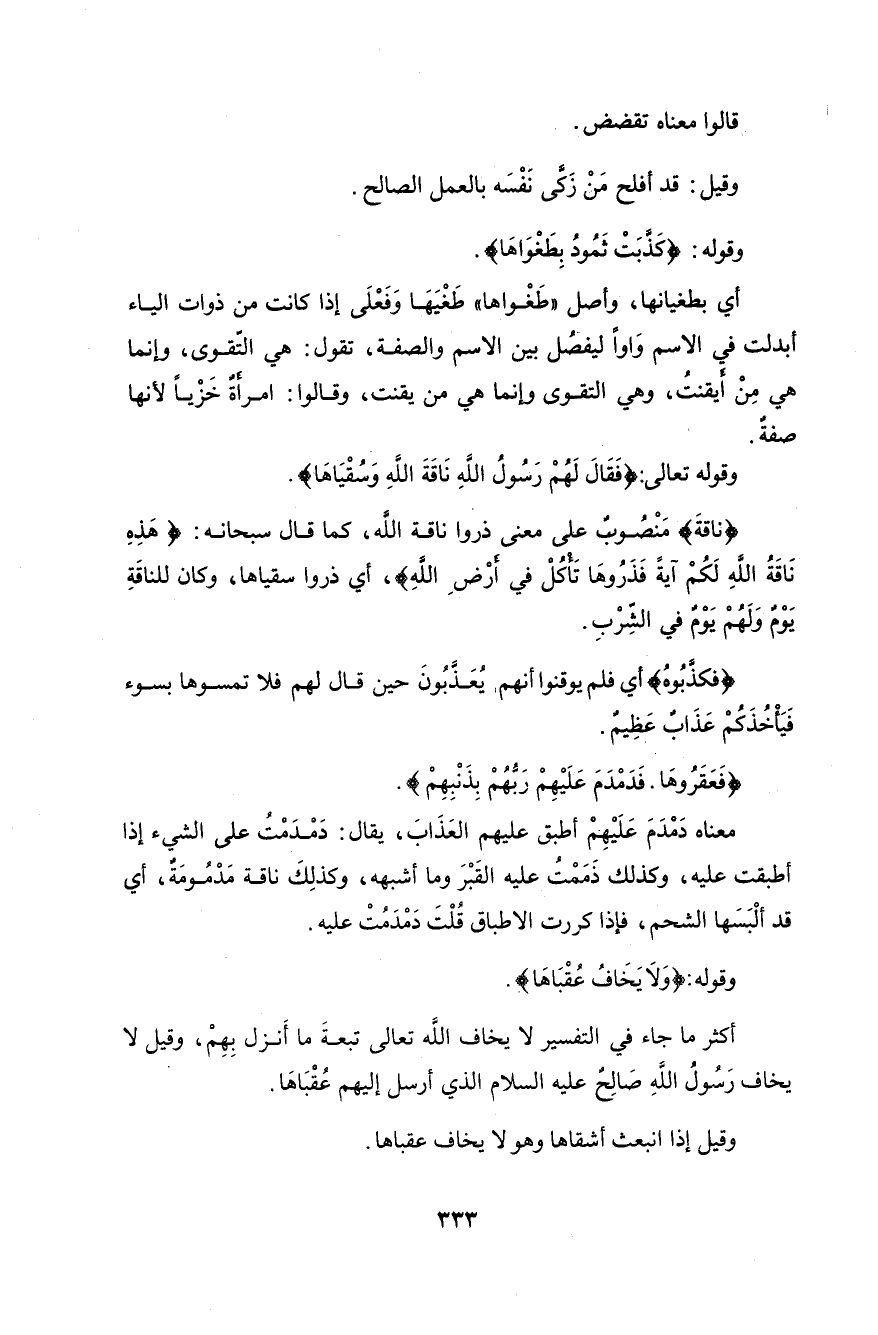 قالوا معناه تقضض.
وقيل: قد أفلح مَنْ زَكَّى نَفْسَه بالعمل الصالح.
وقوله: ﴿كَذَّبَتْ ثَمُودُ بِطَغْوَاهَا﴾.
أي بطغيانها، وأصل «طَغْـواها» طَغْيَهَـا وَفَعْلَى إذا كانت من ذوات اليـاء
أبدلت في الاسم وَاواً ليفصُل بين الاسم والصفـة، تقول: هي التّقوى، وإنما
هي مِنْ أَيقنتُ، وهي التقـوى وإنما هي من يقنت، وقـالوا: امـرأَةٌ خَزْيـاً لأنها
صفةٌ.
وقوله تعالى:﴿فَقَالَ لَهُمْ رَسُولُ اللَّهِ نَاقَةَ اللَّهِ وَسُقْيَاهَا﴾.
﴿ناقةَ﴾ مَنْصُـوبٌ على معنى ذروا ناقـة اللَّه، كما قـال سبحانـه: ﴿ هَذِهِ
نَاقَةُ اللَّهِ لَكُمْ آيةً فَذَرُوهَا تَأْكُلْ في أَرْضِ اللَّهِ﴾، أي ذروا سقياها، وكان للناقَةِ
يَوْمٌ وَلَهُمْ يَوْمٌ في الشِّرْبِ.
﴿فكذَّبُوهُ﴾ أي فلم يوقنوا أنهم يُعَـذَّبُونَ حين قـال لهم فلا تمسـوها بسـوء
فَيَأْخُذَكُمْ عَذَابٌ عَظِيمٌ.
﴿فَعَقَرُوهَا. فَدَمْدَمَ عَلَيْهِمْ رَبُّهُمْ بِذَنْبِهِمْ ﴾.
معناه دَمْدَمَ عَلَيْهِمْ أطبق عليهم العَذَابَ، يقال: دَمْـدَمْتُ على الشيء إذا
أطبقت عليه، وكذلك دَمَمْتُ عليه القَبْرَ وما أشبهه، وكذلِكَ ناقـة مَدْمُـومَةٌ، أي
قد ألْبَسَها الشحم، فإذا كررت الاطباق قُلْتَ دَمْدَمُتْ عليه.
وقوله:﴿وَلاَ يَخَافُ عُقْبَاهَا﴾.
أكثر ما جاء في التفسير لا يخاف اللَّه تعالى تبعـةَ ما أَنـزل بِهِمْ، وقيل لا
يخاف رَسُولُ اللَّهِ صَالِحٌ عليه السلام الذي أرسل إليهم عُقْبَاهَا.
وقيل إذا انبعث أشقاها وهو لا يخاف عقباها.
٣٣٣